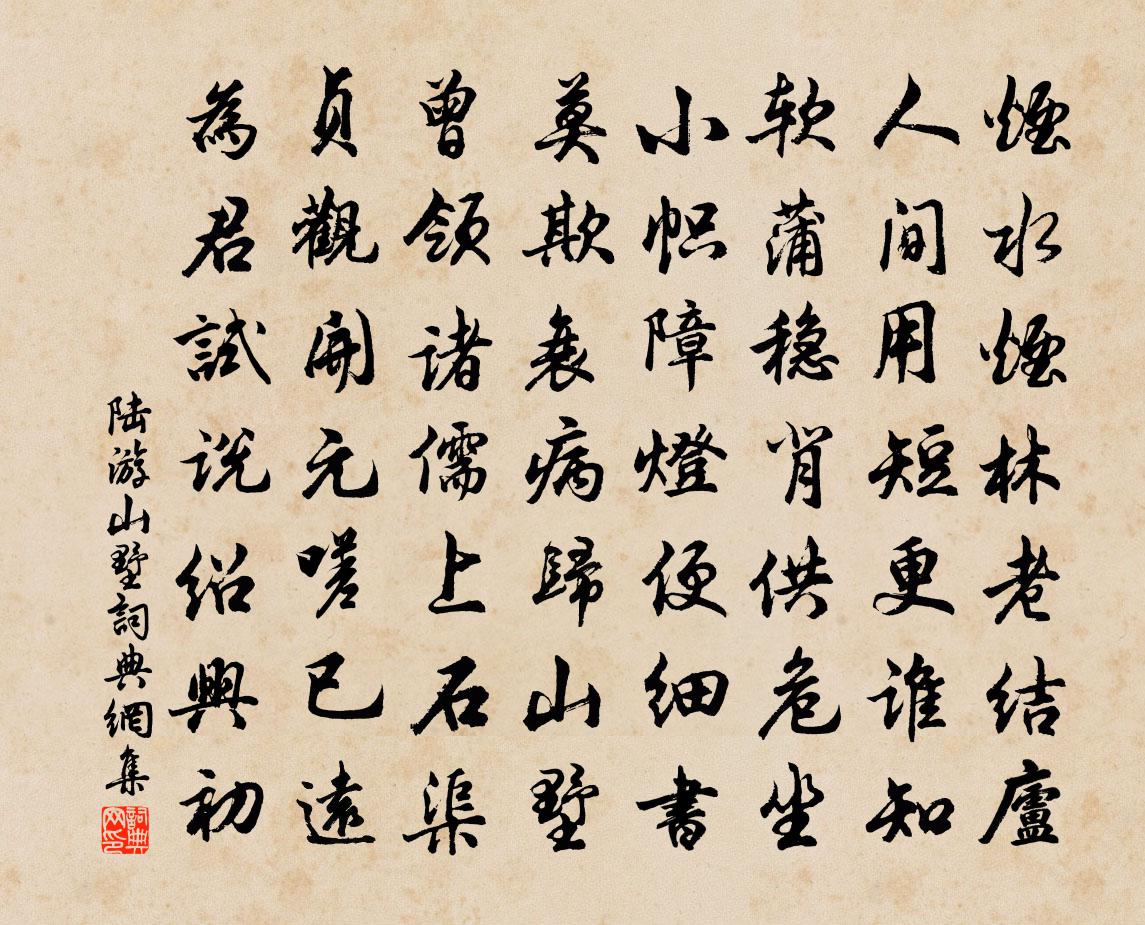 煙水煙林老結廬
人间用短更誰知
软蒲稳肖供危坐
小帜障燈便细書
莫欺衰病歸山墅
曾领诸儒上石渠
貞觀開元嗟已遠
為君試说绍興初
陆游山墅詞典網集
詞典网印